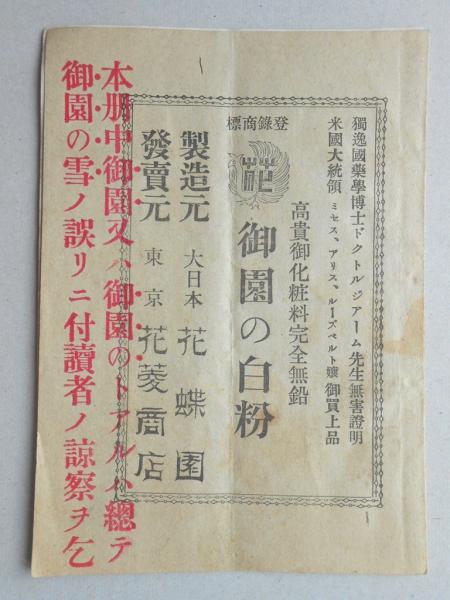 獨逸國藥學博士ドクトルジアーム先生無害證明
米國大統領ミセス、アリス、ルーズベルト孃御買上品
高貴御化粧料完全無鉛
登錄商標
花
御園の白粉
製造元 大日本 花蝶園
發賣元 東京 花菱商店
本册中御園又ハ御園のトアルハ總テ
御園の雪ノ誤リニ付讀者ノ諒察ヲ乞